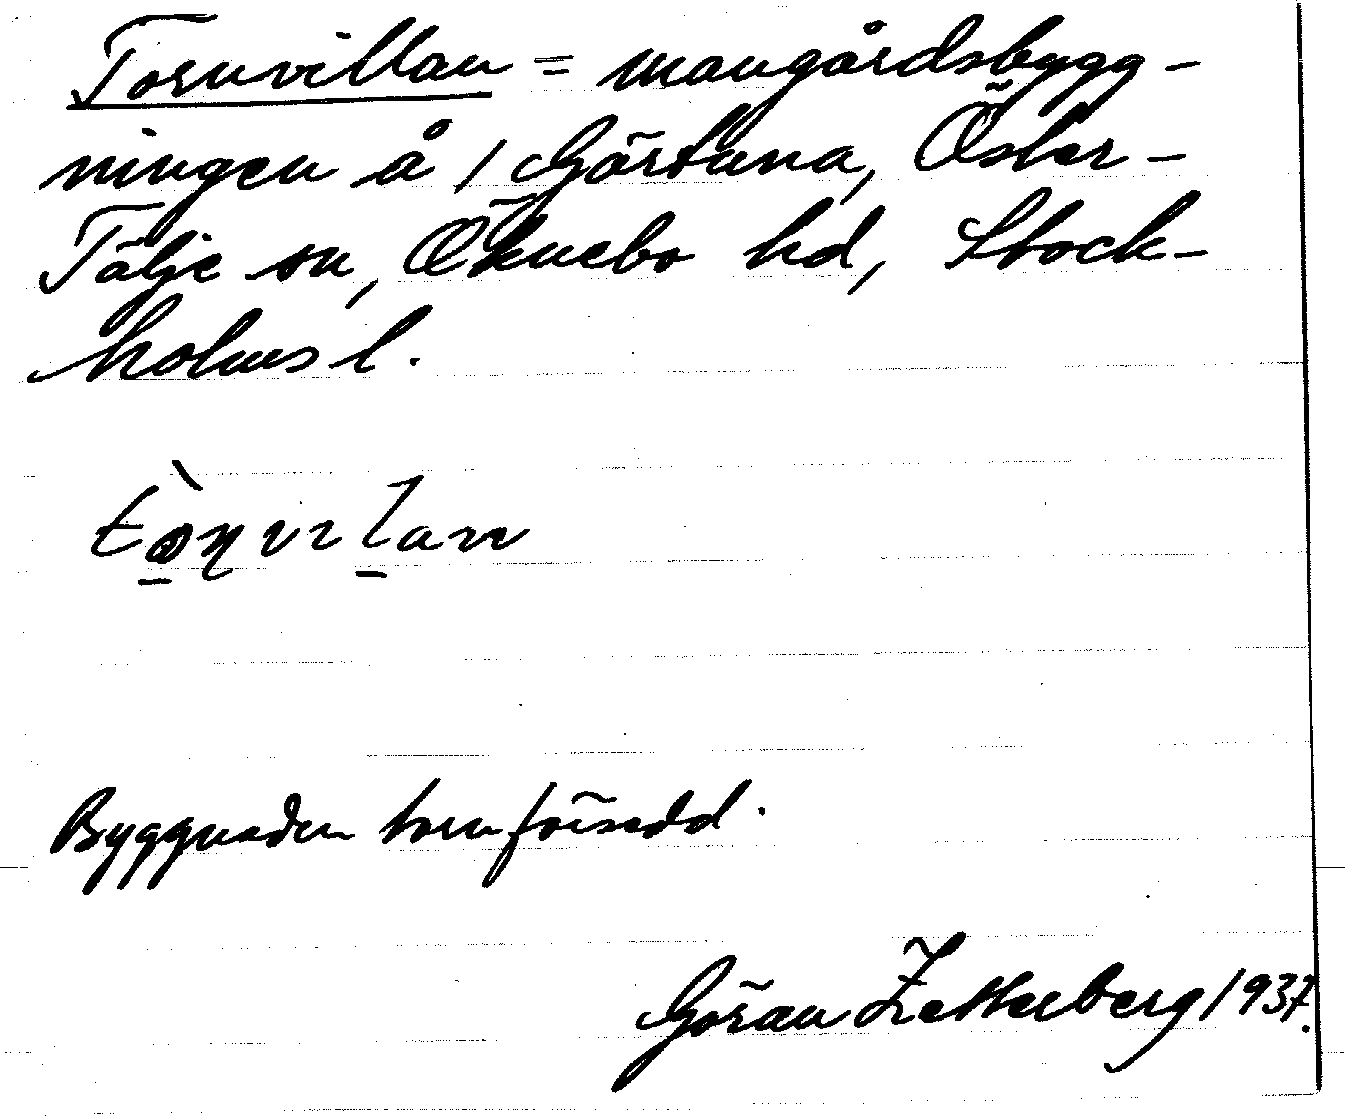 Tornvillan = mangårdsbygg-
ningen å 1 Gärtuna, Öster-
Tälje sn, Öknebo hd, Stock-
holms l.
Byggnaden tornförsedd.
Göran Zetterberg 1937.